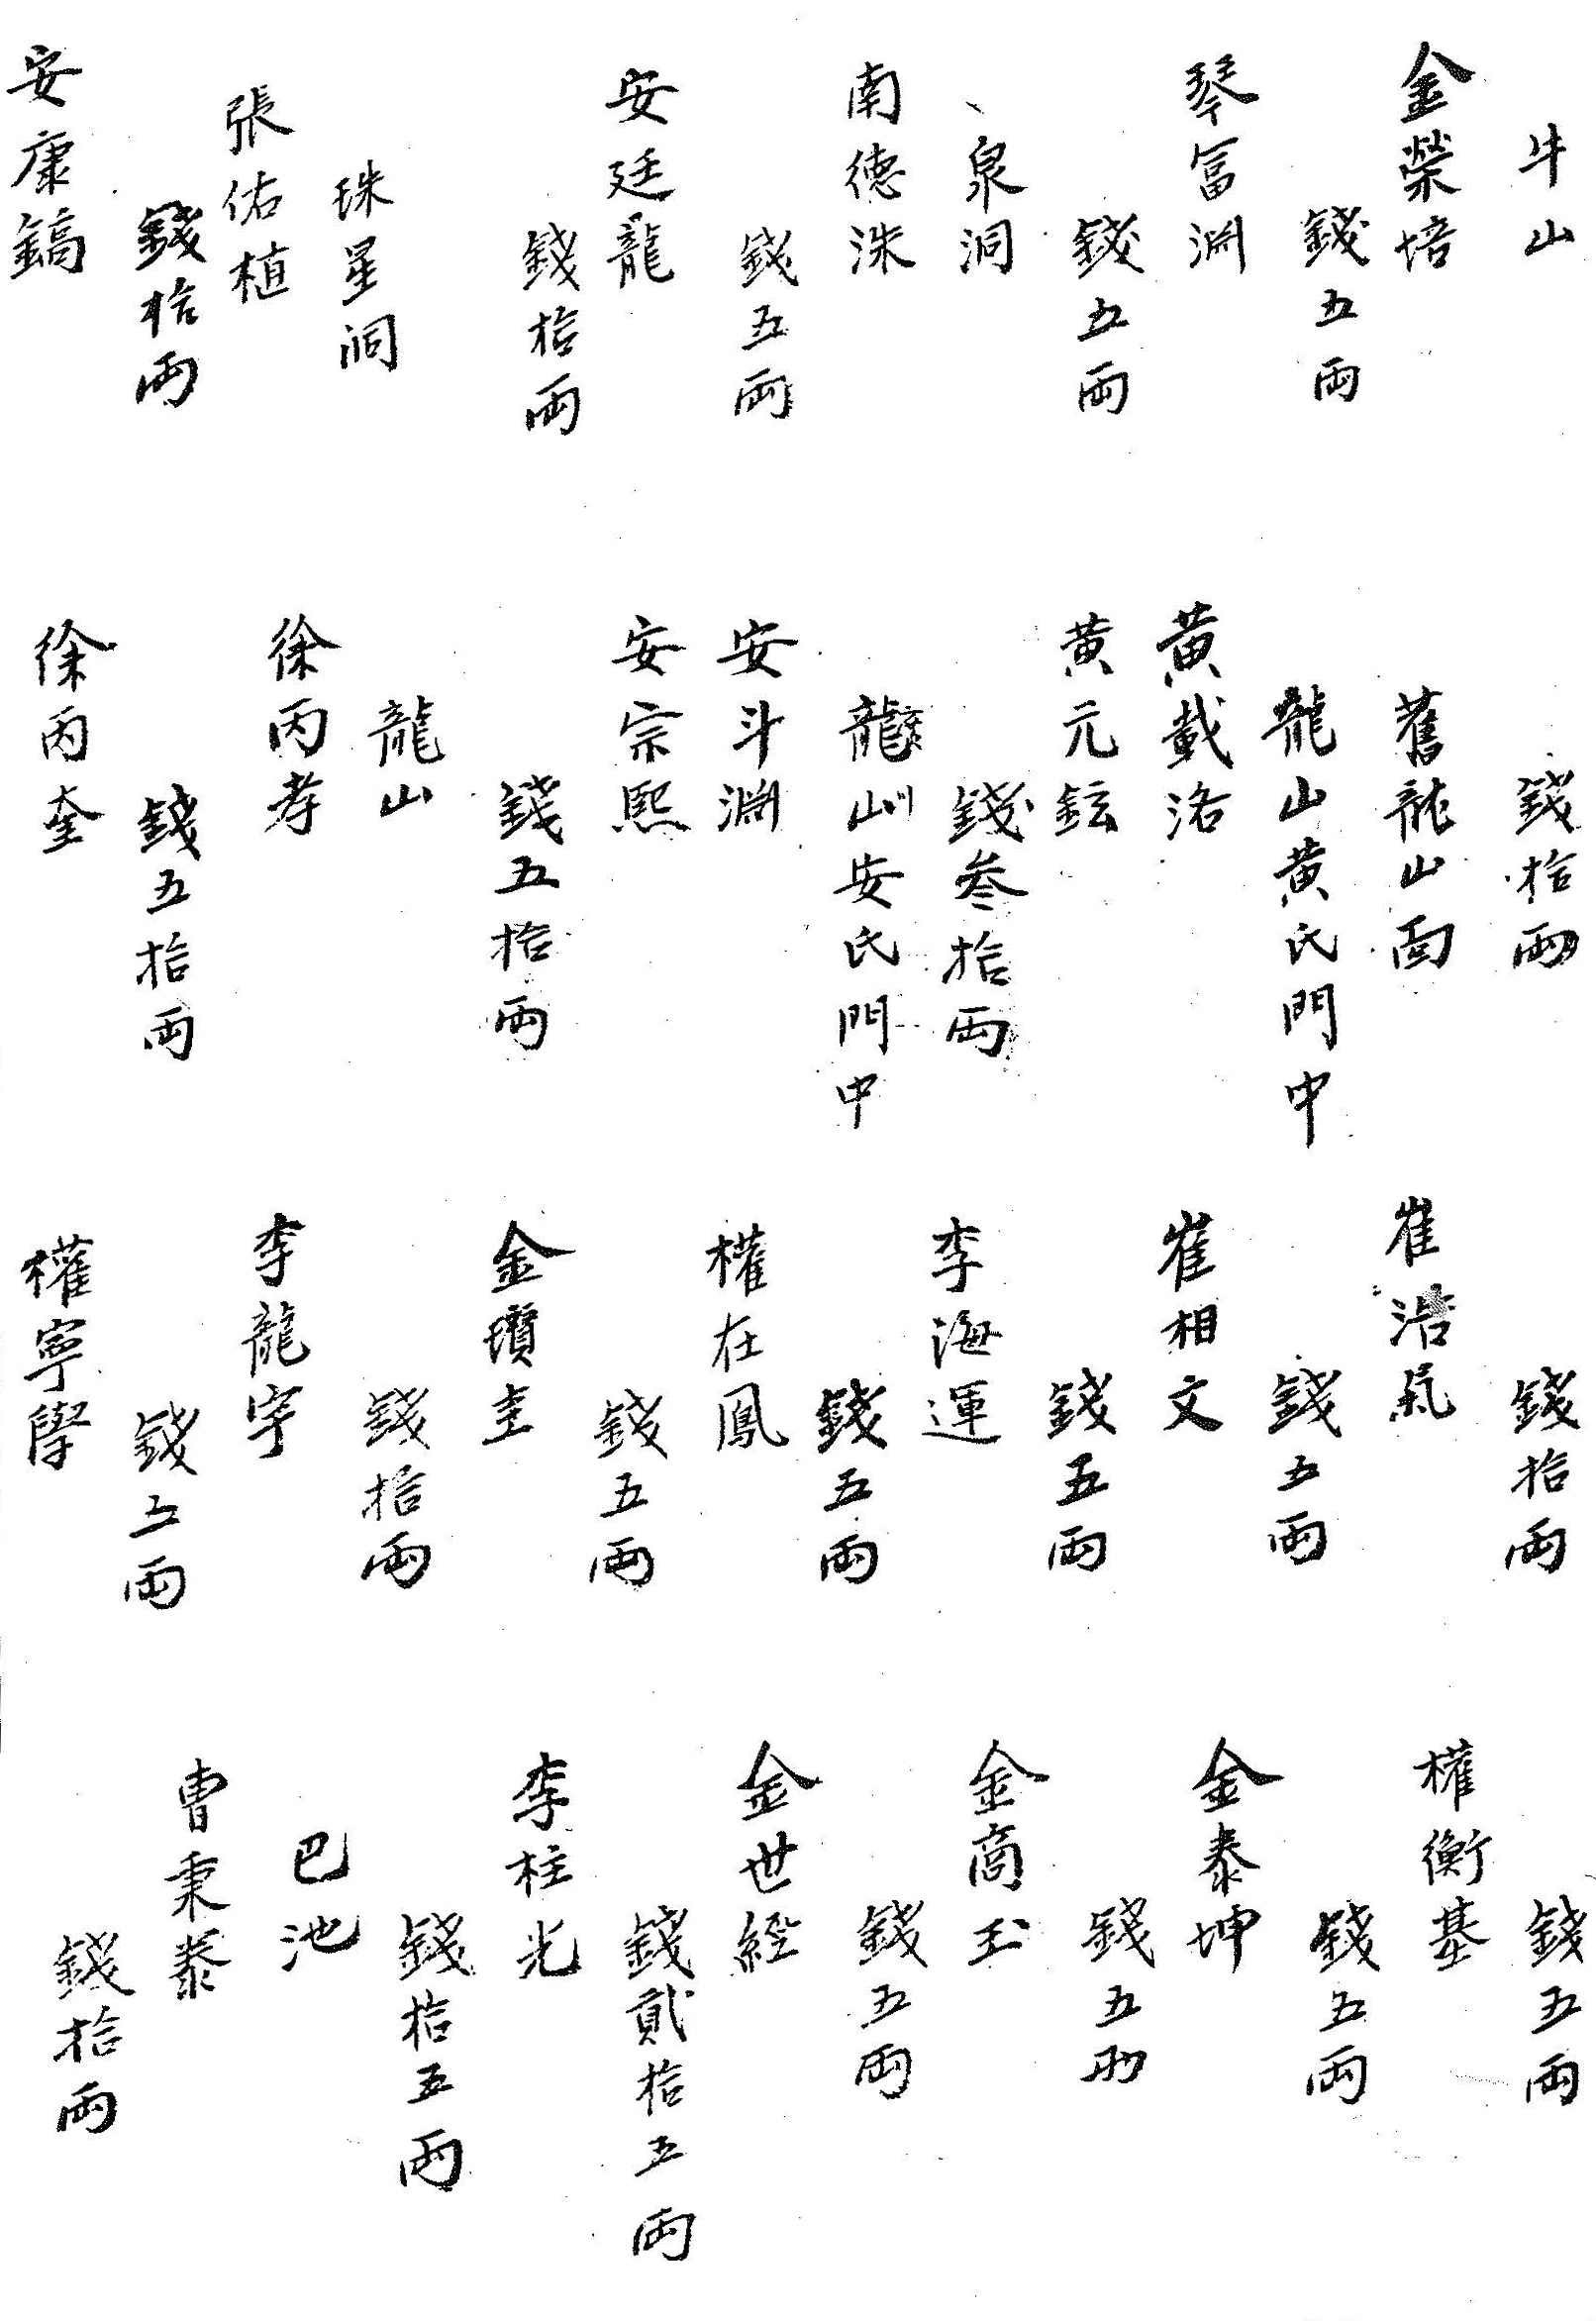 牛山
金榮培
錢五兩
琴富淵
錢五兩
泉洞
南德洙
錢五兩
安廷龍
錢拾兩
珠星洞
張佑植
錢拾兩
安康鎬
錢拾兩
舊龍山面
龍山黃氏門中
黃載洛
黃元鉉
錢叁拾兩
龍山安氏門中
安斗淵
安宗熙
錢五拾兩
龍山
徐丙孝
錢五拾兩
徐丙奎
錢拾兩
崔浩氣
錢五兩
崔相文
錢五兩
李海運
錢五兩
權在鳳
錢五兩
金瓚圭
錢拾兩
李龍宇
錢五兩
權寧學
錢五兩
權衡基
錢五兩
金泰坤
錢五兩
金商玉
錢五兩
金世經
錢貳拾五兩
李柱光
錢拾五兩
巴池
曺秉泰
錢拾兩